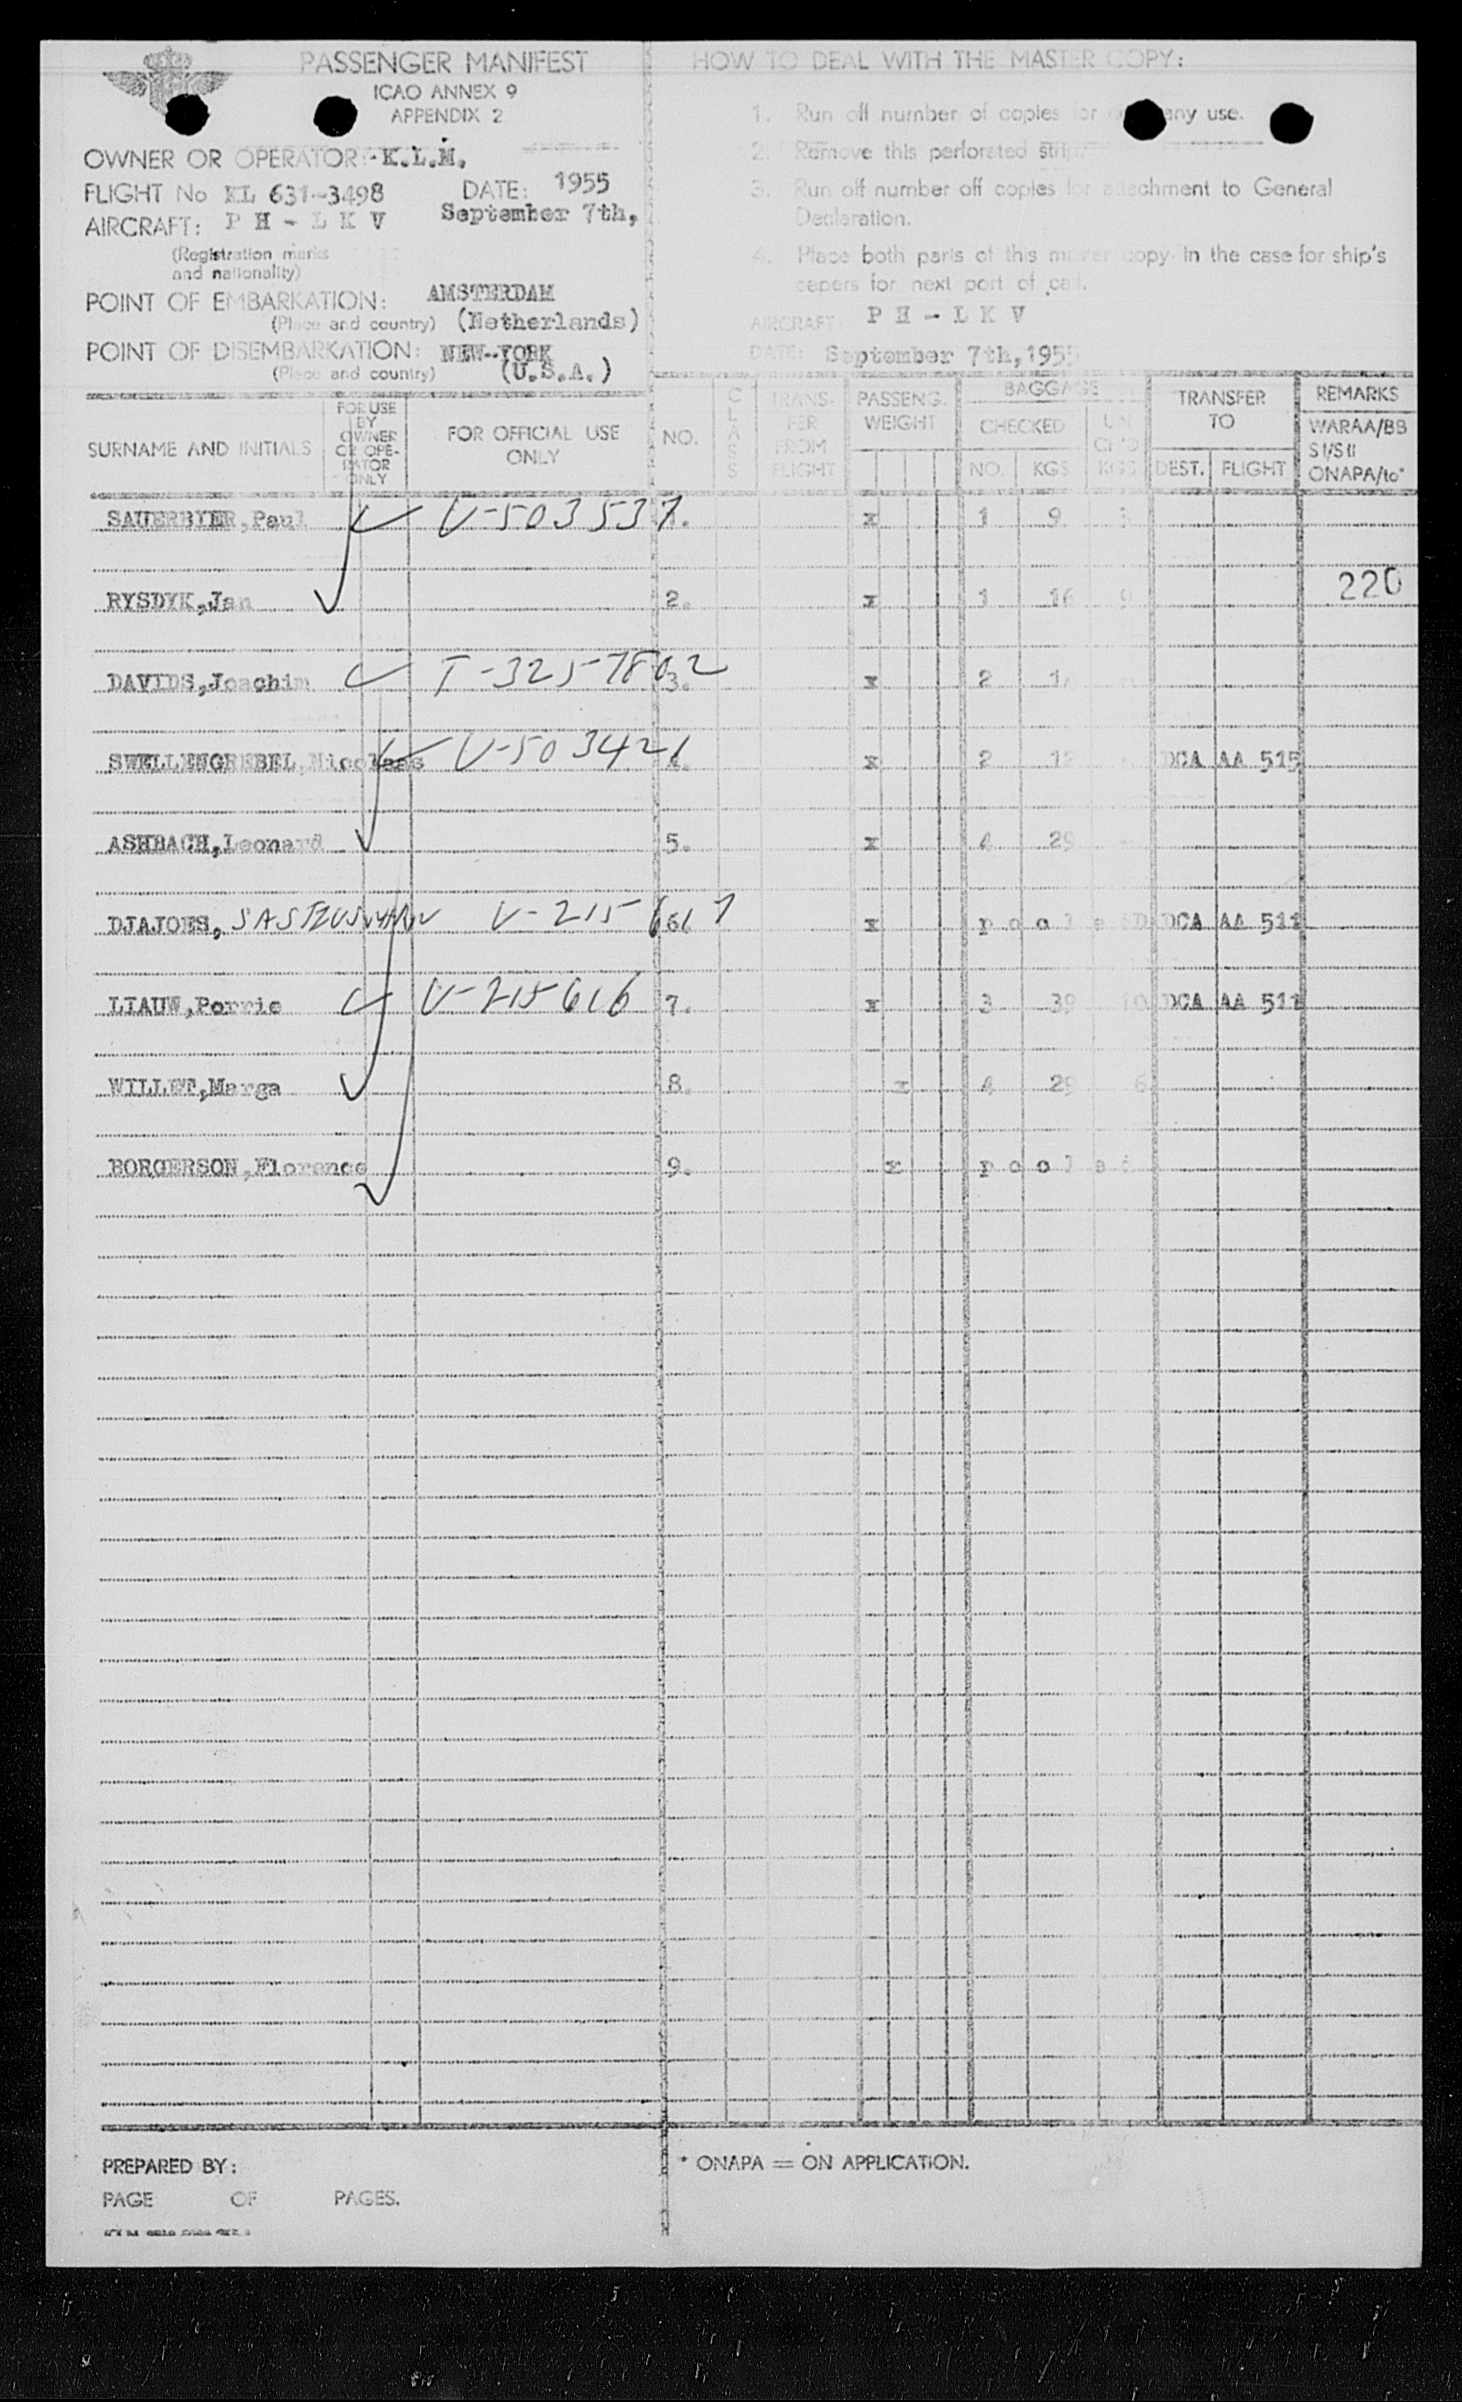 PASSENGER MANIFEST
ICAO ANNEX 9
APPENDIX 2
OWNER OR OPERATOR: K.L.M.
FLIGHT No KL 631-3498 DATE: 1955
September 7th,
AIRCRAFT: P H - L K V
(Registration marks
and nationality)
POINT OF EMBARKATION: AMSTERDAM
(Place and country) (Netherlands)
POINT OF DISEMBARKATION: NEW-YORK
(Place and country) (U.S.A.)
HOW TO DEAL WITH THE MASTER COPY:
1. Run off number of copies for any use.
2. Remove this perforated strip.
3. Run off number off copies for attachment to General
Declaration.
4. Place both parts of this master copy in the case for ship's
papers for next port of call.
AIRCRAFT: P H - L K V
DATE: September 7th, 1955
SURNAME AND INITIALS FOR USE BY OWNER OR OPE-RATOR ONLY FOR OFFICIAL USE ONLY NO. CLASS TRANS-FER FROM FLIGHT PASSENG. WEIGHT BAGGAGE CHECKED NO. KGS UN CH'D KGS TRANSFER TO DEST. FLIGHT REMARKS WARAA/BB SI/SII ONAPA/to*
SAUERBIER, Paul V-503537 1. x 1 9
RYSDYK, Jan 2. x 1 16 9 220
DAVIDS, Joachim T-3257802 3. x 2
SWELLENGREBEL, Nicolaas V-503421 4. x 2 12 DCA AA 515
ASHBACH, Leonard 5. x 4 29
DJAJOES, V-215617 6. x pooled DCA AA 511
LIAUW, Porrie V-215616 7. x 3 39 10 DCA AA 511
WILLET, Marga 8. x 4 29 6
BORGERSON, Florence 9. x pooled
PREPARED BY:
PAGE OF PAGES.
* ONAPA = ON APPLICATION.